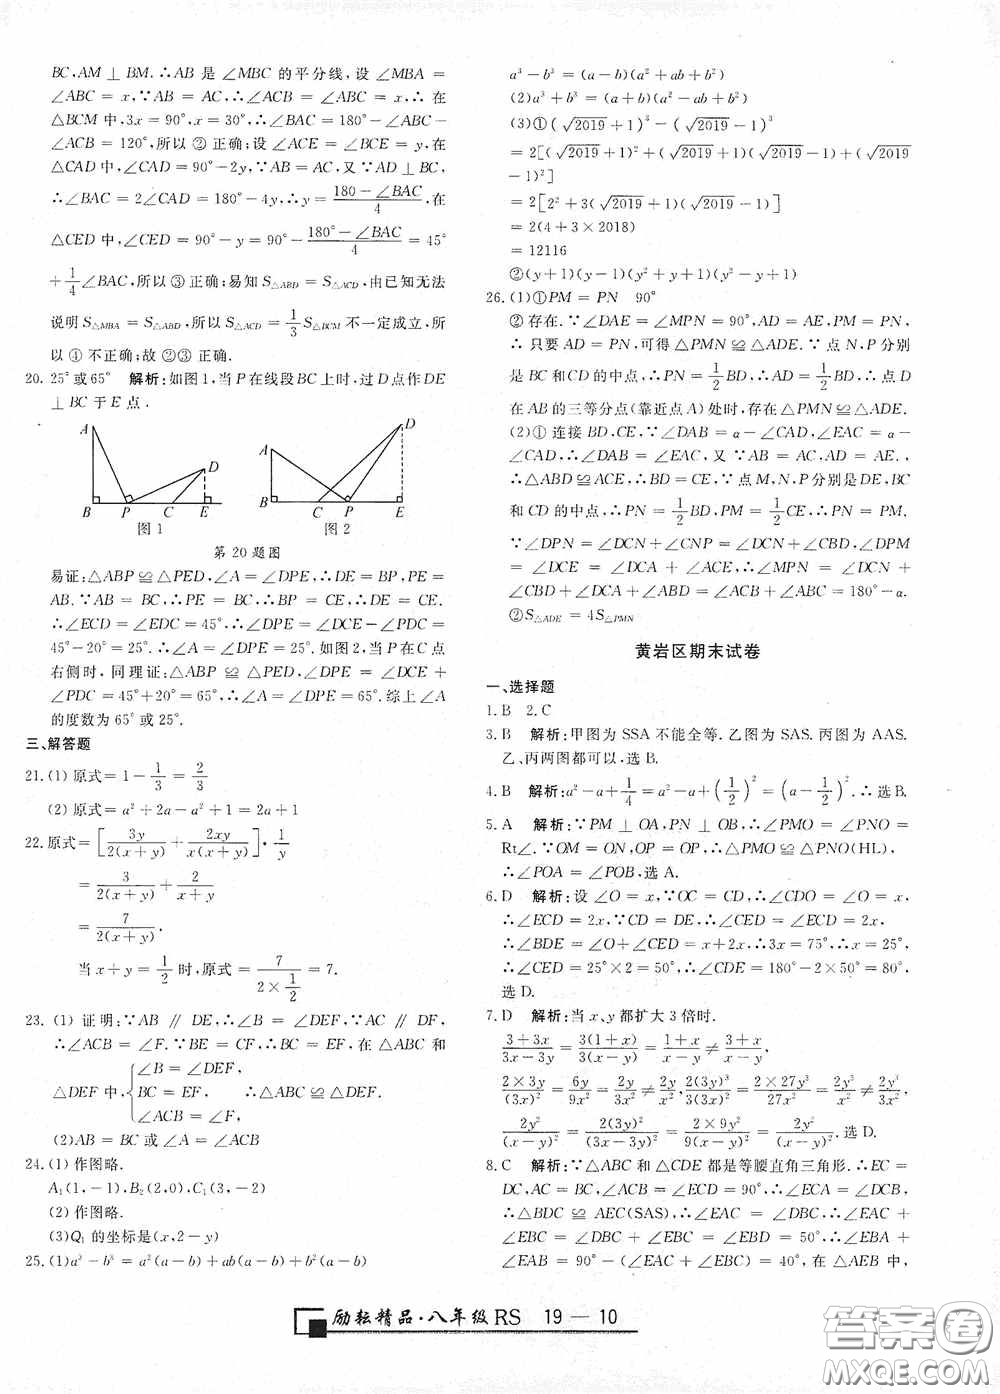 BC,AM⊥BM.∴AB 是∠MBC 的平分线,设∠MBA=
∠ABC=x,∵AB=AC,∴∠ACB=∠ABC=x,∴ 在
△BCM 中,3x=90°,x=30°,∴∠BAC=180°-∠ABC-
∠ACB=120°,所以 ② 正确;设∠ACE=∠BCE=y,在
△CAD 中,∠CAD=90°-2y,∵AB=AC,又∵AD⊥BC,
∴∠BAC=2∠CAD=180°-4y,∴y=(180-∠BAC)/4,在
△CED 中,∠CED=90°-y=90°-(180-∠BAC)/4=45°
+1/4∠BAC,所以 ③ 正确;易知 S△ABD=S△ACD,由已知无法
说明 S△MBA=S△ABD,所以 S△ACD=1/3 S△BCM 不一定成立,所
以 ④ 不正确;故 ②③ 正确.
20. 25°或65° 解析:如图1,当P在线段BC上时,过D点作DE
⊥BC于E点.
A D B P C E
图1
A D B C P E
图2
第20题图
易证:△ABP≌△PED,∠A=∠DPE,∴DE=BP,PE=
AB.∵AB=BC,∴PE=BC,∴BP=CE,∴DE=CE.
∴∠ECD=∠EDC=45°,∴∠DPE=∠DCE-∠PDC=
45°-20°=25°.∴∠A=∠DPE=25°.如图2,当P在C点
右侧时,同理证:△ABP≌△PED,∴∠DPE=∠DCE+
∠PDC=45°+20°=65°,∴∠A=∠DPE=65°.综上∠A
的度数为65°或25°.
三、解答题
21.(1) 原式=1-1/3=2/3
(2) 原式=a²+2a-a²+1=2a+1
22.原式=[3y/2(x+y)+2xy/x(x+y)]·1/y
=3/2(x+y)+2/(x+y)
=7/2(x+y).
当x+y=1/2时,原式=7/(2×1/2)=7.
23.(1) 证明:∵AB∥DE,∴∠B=∠DEF,∵AC∥DF,
∴∠ACB=∠F.∵BE=CF,∴BC=EF.在△ABC和
△DEF中,{∠B=∠DEF,
BC=EF, ∴△ABC≌△DEF
∠ACB=∠F,
(2)AB=BC或∠A=∠ACB
24.(1) 作图略.
A₁(1,-1),B₂(2,0),C₁(3,-2)
(2) 作图略.
(3)Q₁的坐标是(x,2-y)
25.(1)a³-b³=a²(a-b)+ab(a-b)+b²(a-b)
a³-b³=(a-b)(a²+ab+b²)
(2)a³+b³=(a+b)(a²-ab+b²)
(3)①(√2019+1)³-(√2019-1)³
=2[(√2019+1)²+(√2019+1)(√2019-1)+(√2019
-1)²]
=2[2²+3(√2019+1)(√2019-1)]
=2(4+3×2018)
=12116
②(y+1)(y-1)(y²+y+1)(y²-y+1)
26.(1)①PM=PN 90°
②存在.∵∠DAE=∠MPN=90°,AD=AE,PM=PN,
∴ 只要AD=PN,可得△PMN≌△ADE.∵ 点N,P分别
是BC和CD的中点,∴PN=1/2BD,∴AD=1/2BD,∴ 点D
在AB的三等分点(靠近点A)处时,存在△PMN≌△ADE.
(2)① 连接BD,CE,∵∠DAB=α-∠CAD,∠EAC=α-
∠CAD,∴∠DAB=∠EAC,又∵AB=AC,AD=AE.,
∴△ADB≌△ACE,∴BD=CE,∵点M,N,P分别是DE,BC
和CD的中点,∴PN=1/2BD,PM=1/2CE,∴PM=PN.
∵∠DPN=∠DCN+∠CNP=∠DCN+∠CBD,∠DPM
=∠DCE=∠DCA+∠ACE,∴∠MPN=∠DCN+
∠CBD+∠DCA+∠ABD=∠ACB+∠ABC=180°-α.
②S△ADE=4S△PMN
黄岩区期末试卷
一、选择题
1.B 2.C
3.B 解析:甲图为SSA不能全等.乙图为SAS.丙图为AAS.
乙、丙两图都可以.选B.
4.B 解析:a²-a+1/4=a²-a+(1/2)²=(a-1/2)².∴选B.
5.A 解析:∵PM⊥OA,PN⊥OB,∴∠PMO=∠PNO=
Rt∠.∵OM=ON,OP=OP,∴△PMO≌△PNO(HL),
∴∠POA=∠POB,选A.
6.D 解析:设∠O=x,∵OC=CD,∴∠CDO=∠O=x,
∴∠ECD=2x,∵CD=DE,∴∠CED=∠ECD=2x,
∴∠BDE=∠O+∠CED=x+2x,∴3x=75°,∴x=25°,
∴∠CED=25°×2=50°,∴∠CDE=180°-2×50°=80°,
选D.
7.D 解析:当x、y都扩大3倍时.
(3+3x)/(3x-3y)=3(1+x)/3(x-y)=(1+x)/(x-y)≠(3+x)/(x-y),
2×3y/(3x)²=6y/9x²=2y/3x²≠2y/x²,2(3y)³/3(3x)²=2×27y³/27x²=2y³/x²≠2y³/3x²,
2y²/(x-y)²=2(3y)²/(3x-3y)²=2×9y²/9(x-y)²=2y²/(x-y)².选D.
8.C 解析:∵△ABC和△CDE都是等腰直角三角形.∴EC=
DC,AC=BC,∠ACB=∠ECD=90°,∴∠ECA=∠DCB,
∴△BDC≌△AEC(SAS),∴∠DBC=∠EAC,∴∠EAC+
∠EBC=∠DBC+∠EBC=∠EBD=50°,∴∠EBA+
∠EAB=90°-(∠EAC+∠EBC)=40°,在△AEB中,
励耘精品·八年级RS 19—10
答案圈
MXQE.COM